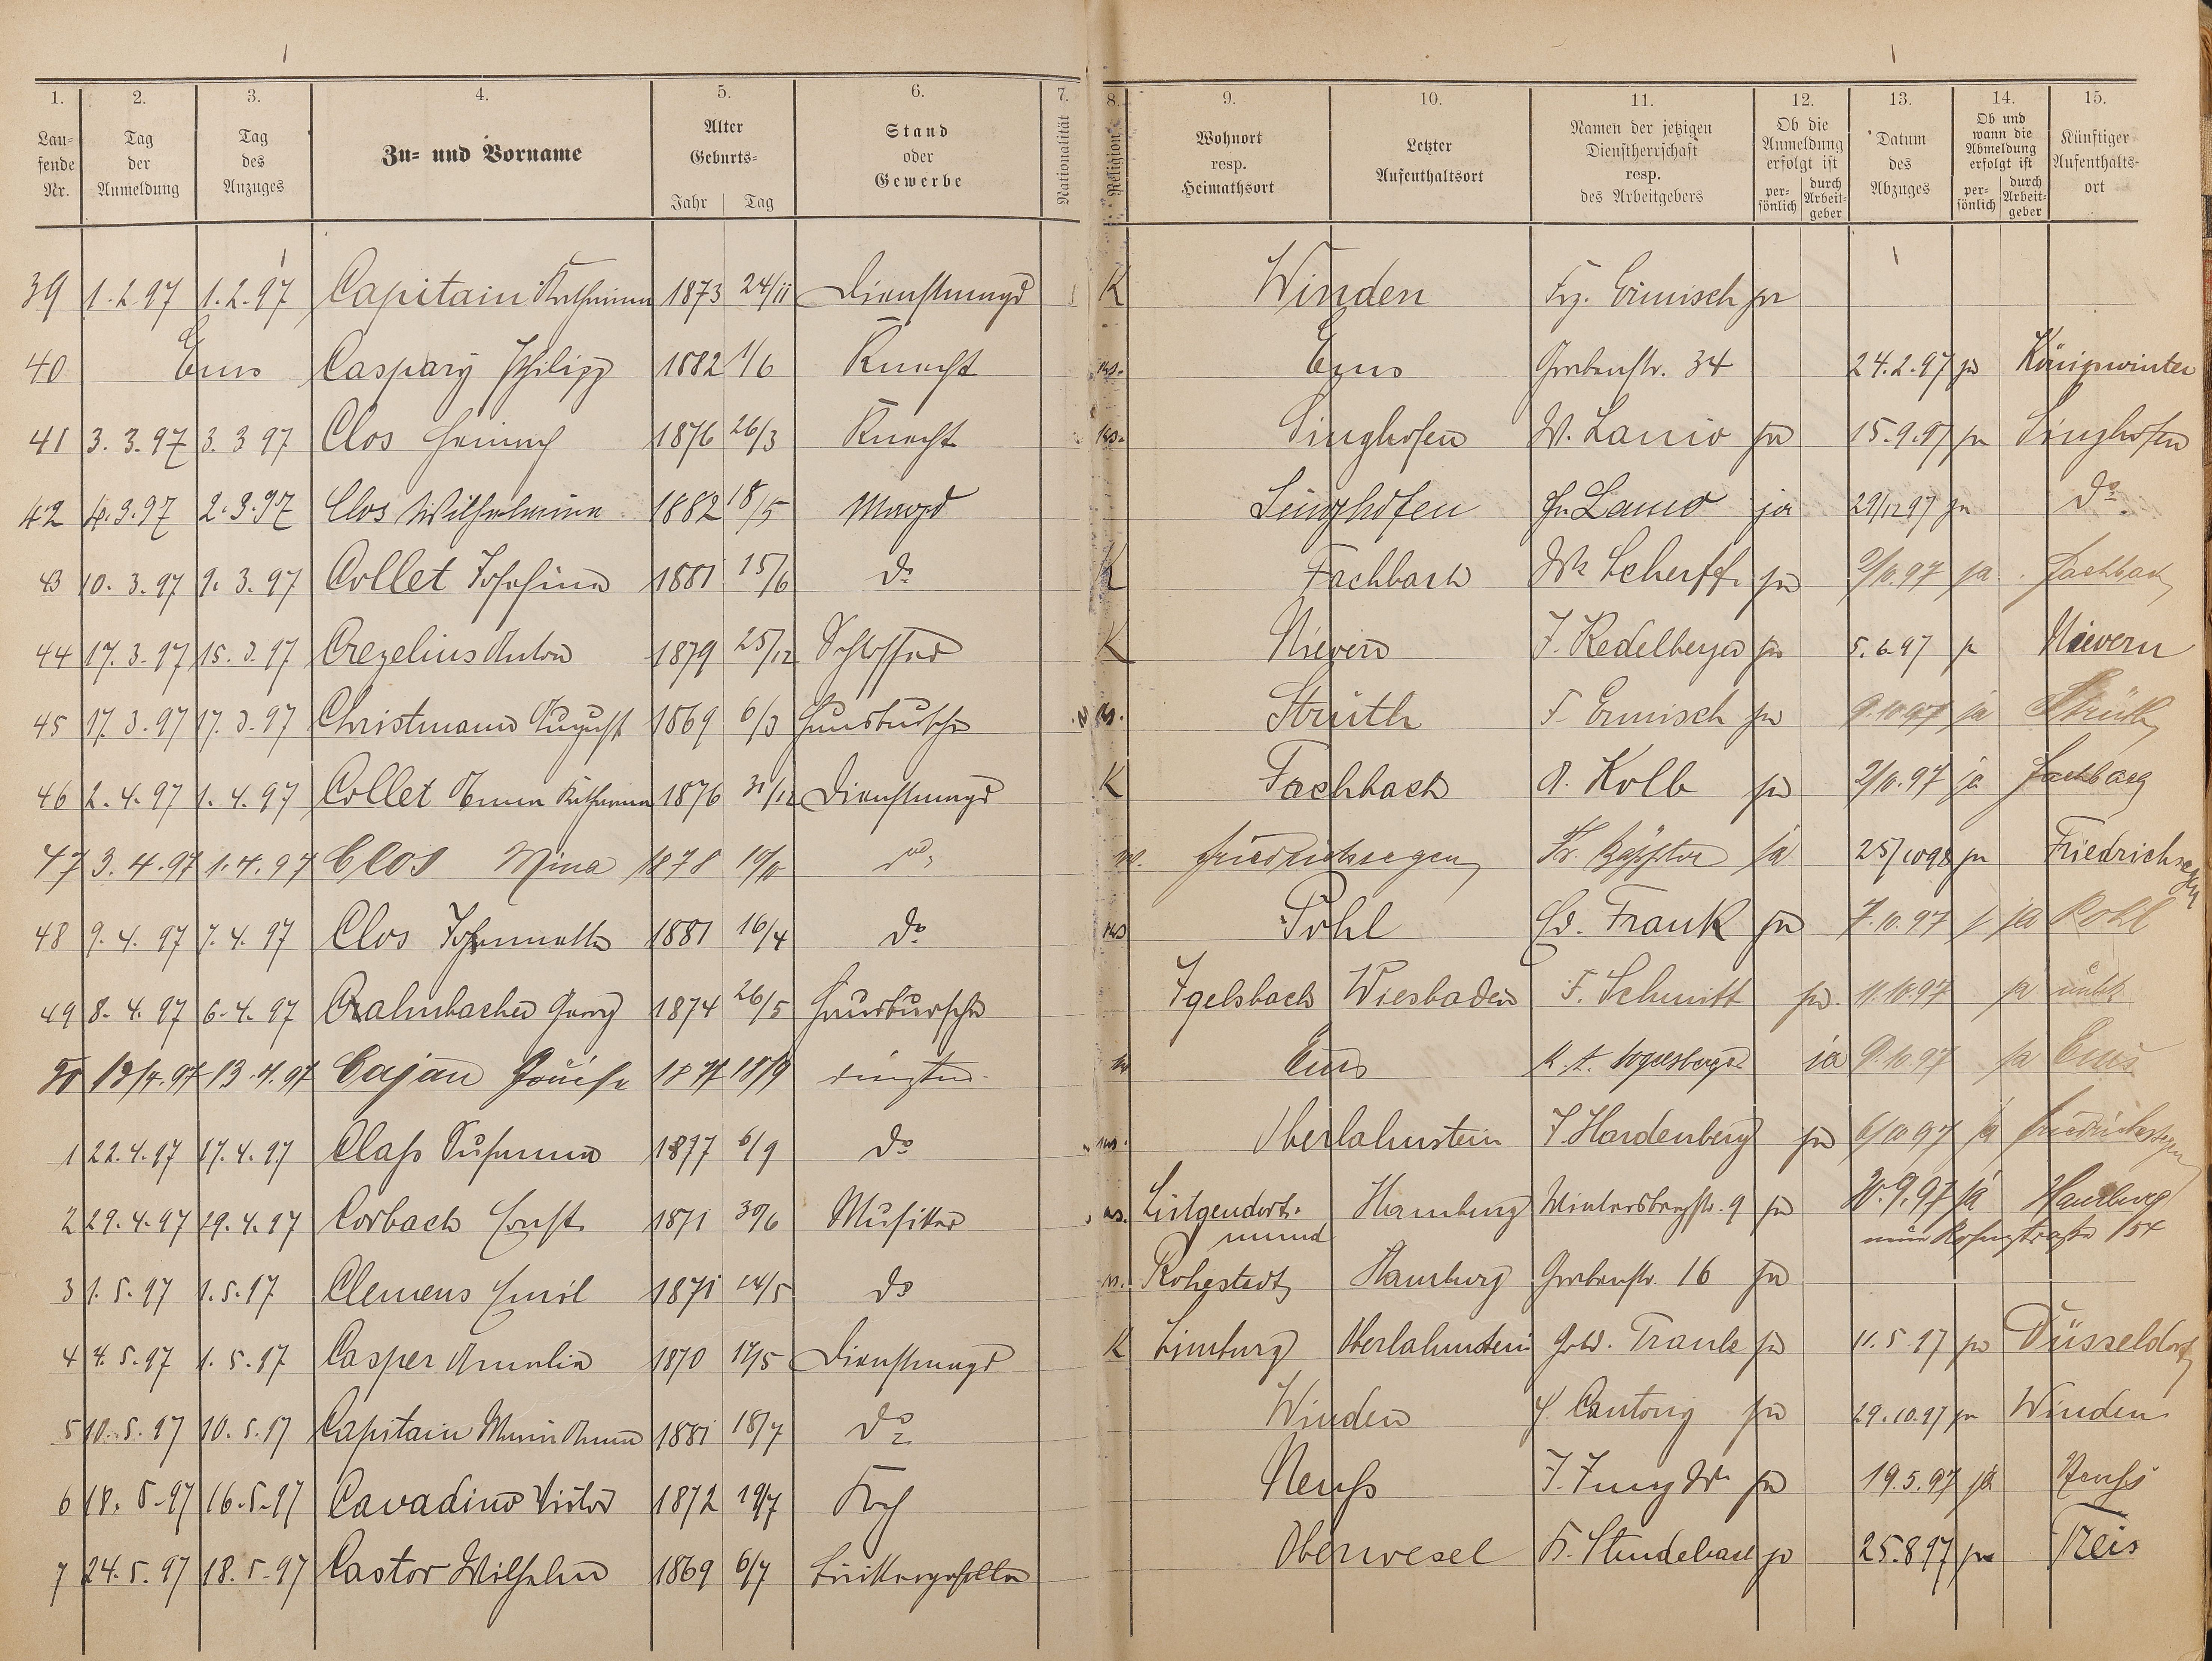 1. 2. 3. 4. 5. 6. 7. 8. 9. 10. 11. 12. 13. 14. 15.
Laufende Nr.
Tag der Anmeldung
Tag des Anzuges
Zu- und Vorname
Alter
Geburts-
Jahr Tag
Stand oder Gewerbe
Nationalität
Religion
Wohnort resp. Heimathsort
Letzter Aufenthaltsort
Namen der jetzigen Dienstherrschaft resp. des Arbeitgebers
Ob die Anmeldung erfolgt ist
persönlich durch Arbeitgeber
Datum des Abzuges
Ob und wann die Abmeldung erfolgt ist
persönlich durch Arbeitgeber
Künftiger Aufenthaltsort
39 1.2.97 1.2.97 Capitain Katharina 1873 24/11 Dienstmagd K Winden Frz. Ermisch ja
40 Ems Caspary Philipp 1882 1/6 Knecht Ems Grabenstr. 34 24.2.97 ja Königswinter
41 3.3.97 3.3 97 Clos Heinrich 1876 26/3 Knecht Singhofen W. Lanio ja 15.9.97 ja Singhofen
42 4.3.97 2.3.97 Clos Wilhelmine 1882 18/5 Magd Singhofen Lanio ja 29/12 97 ja do
43 10.3.97 9.3.97 Collet Josefine 1881 15/6 do K Fachbach Scherff ja 2/10.97 ja Fachbach
44 17.3.97 15.3.97 Crezelius Anton 1879 25/12 Schlosser K Nievern J. Kedelberger ja 5.6.97 ja Nievern
45 17.3.97 17.3.97 Christmann August 1869 6/3 Hausbursche Strüth F. Ermisch ja 9.10.97 ja Strüth
46 2.4.97 1.4.97 Collet Anna Katharina 1876 31/12 Dienstmagd K Fachbach A. Kolb ja 2/10.97 ja Fachbach
47 3.4.97 1.4.97 Clos Mina 1878 do Friedrichssegen ja 25/10 98 ja Friedrichssegen
48 9.4.97 7.4.97 Clos Johannette 1881 16/4 do Pohl Ed. Frank ja 7.10.97 ja Pohl
49 8.4.97 6.4.97 Crahnbacher Georg 1874 26/5 Hausbursche Igelsbach Wiesbaden F. Schmitt ja 11.10.97 ja
50 13/4.97 13.4.97 Cajan Ems ja 9.10.97 ja Ems
1 22.4.97 17.4.97 Claß Susanna 1877 6/9 do Oberlahnstein J. Hardenberg ja 6/10 97 ja Friedrichssegen
2 29.4.97 29.4.97 Corbach Ernst 1871 30/6 Musiker Lütgendortmund Hamburg Wintersbergstr. 9 ja 20.9.97 ja Hamburg
154
3 1.5.97 1.5.97 Clemens Emil 1871 14/5 do Hamburg Grabenstr. 16 ja
4 4.5.97 1.5.97 Casper Amalie 1870 17/5 Dienstmagd K Limburg Oberlahnstein ja 11.5.97 ja Düsseldorf
5 10.5.97 10.5.97 Capitain Maria Anna 1881 18/7 do Winden Cantony ja 29.10.97 ja Winden
6 18.5.97 16.5.97 Cavadino Victor 1872 19/7 Koch Neuss J. Jung Ww ja 19.5.97 ja Neuss
7 24.5.97 18.5.97 Castor Wilhelm 1869 6/7 Oberwesel ja 25.8 97 ja Treis